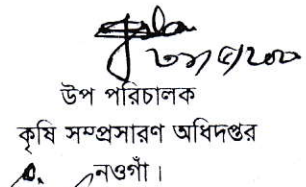 উপ পরিচালক
কৃষি সম্প্রসারণ অধিদপ্তর
নওগাঁ।